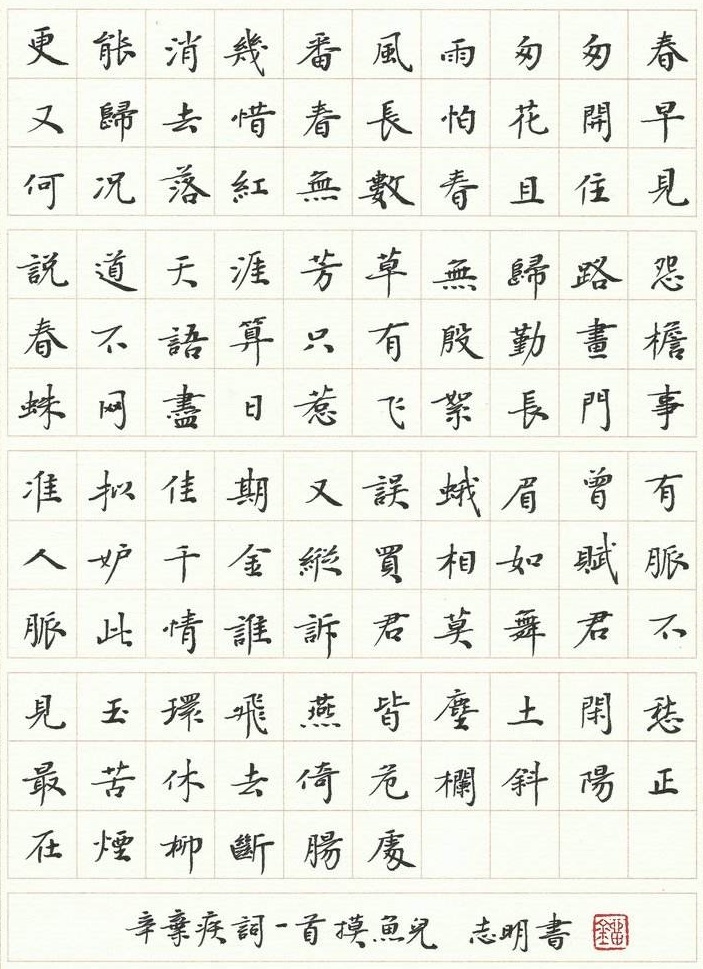 更能消幾番風雨匆匆春
又歸去惜春長怕花開早
何況落紅無數春且住見
說道天涯芳草無歸路怨
春不語算只有殷勤畫檐
蛛网盡日惹飞絮長門事
准拟佳期又誤蛾眉曾有
人妒千金縱買相如賦脈
脈此情誰訴君莫舞君不
見玉環飛燕皆塵土閑愁
最苦休去倚危欄斜陽正
在煙柳斷腸處
辛棄疾詞一首摸魚兒 志明書